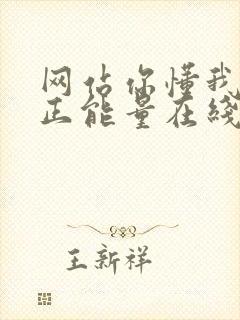 网占你懂我
正能量在线
王新祥